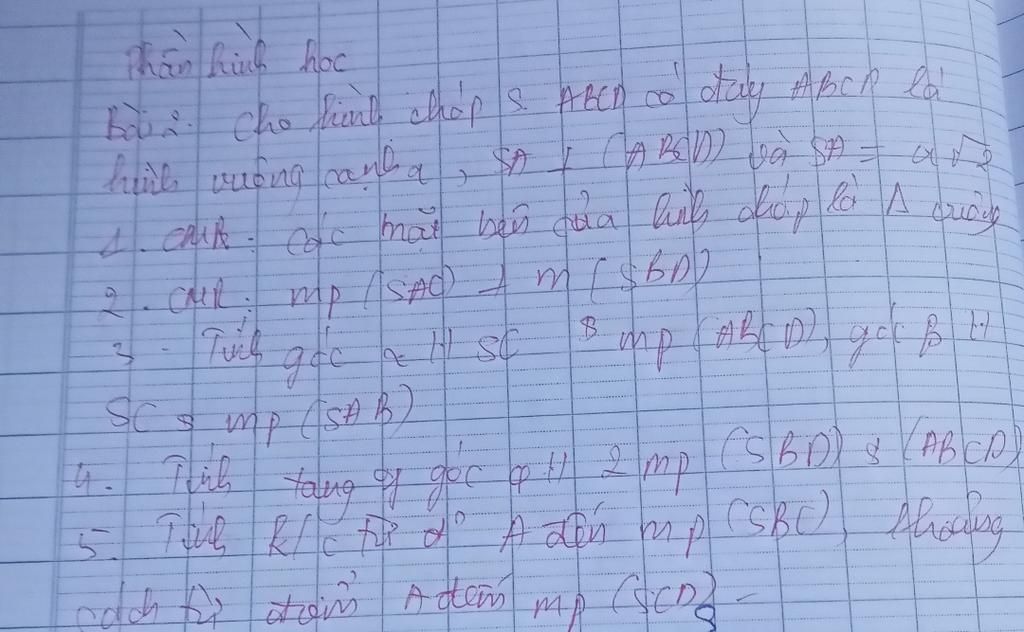 Phần hình học
Bài 2. Cho hình chóp S. ABCD có đáy ABCD là
hình vuông cạnh a, SA ⊥ (ABCD) và SA = a√2
1. CMR: Các mặt bên của hình chóp là Δ vuông
2. CMR: mp (SAC) ⊥ m (SBD)
3 - Tính góc α H SC & mp (ABCD), góc β H
SC & mp (SAB)
4. Tính tang of góc φ H 2 mp (SBD) & (ABCD)
5. Tính K/c từ đ° A đến mp (SBC), khoảng
cách từ điểm A đến mp (SCD) -